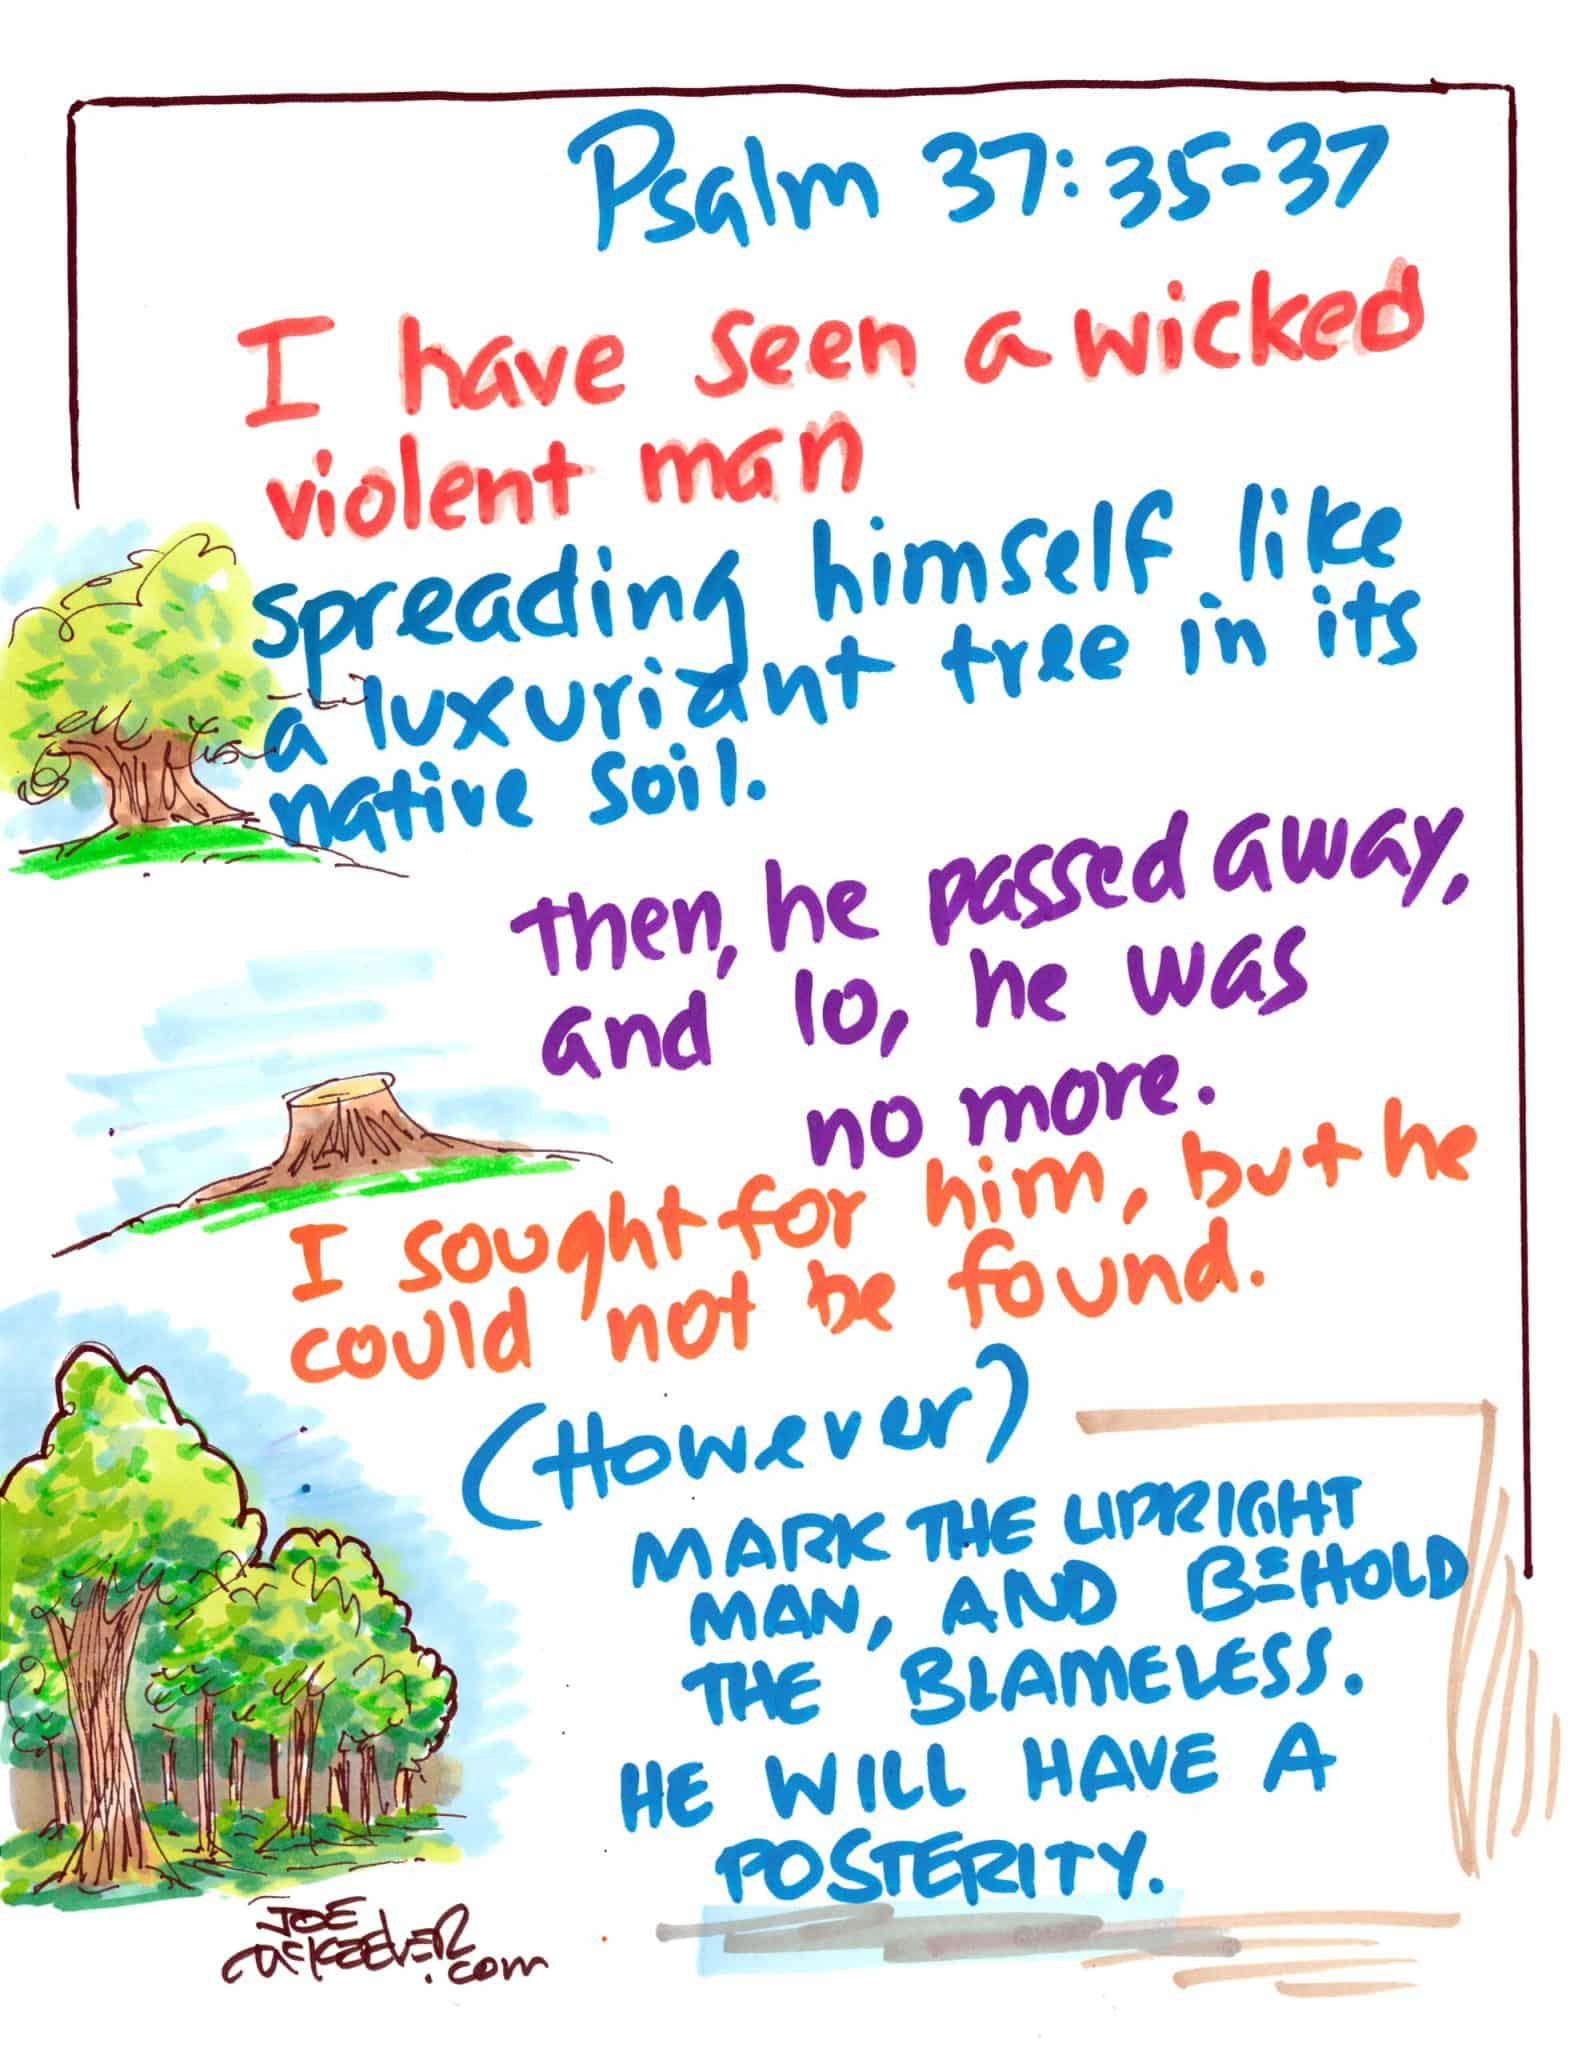 Psalm 37:35-37
I have seen a wicked
violent man
spreading himself like
a luxuriant tree in its
native soil.
Then, he passed away,
and lo, he was
no more.
I sought for him, but he
could not be found.
(However)
MARK THE UPRIGHT
MAN, AND BEHOLD
THE BLAMELESS.
HE WILL HAVE A
POSTERITY.
JOE
McKEEVER
.com